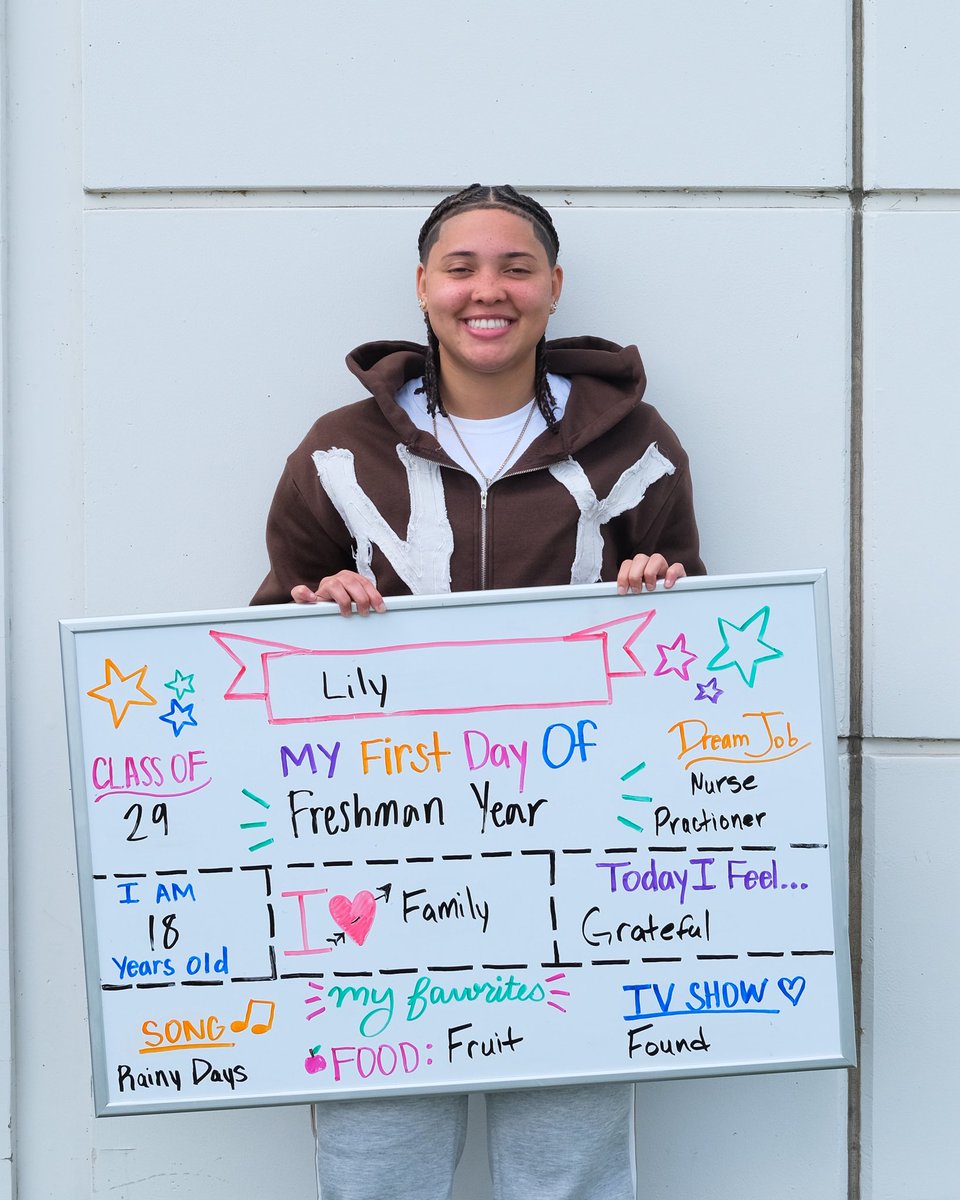 NY
Lily
CLASS OF
29
My First Day Of
Freshman Year
Dream Job
Nurse
Practioner
I AM
18
Years Old
I ♥ Family
Today I Feel...
Grateful
my favorites
SONG
Rainy Days
FOOD: Fruit
TV SHOW
Found